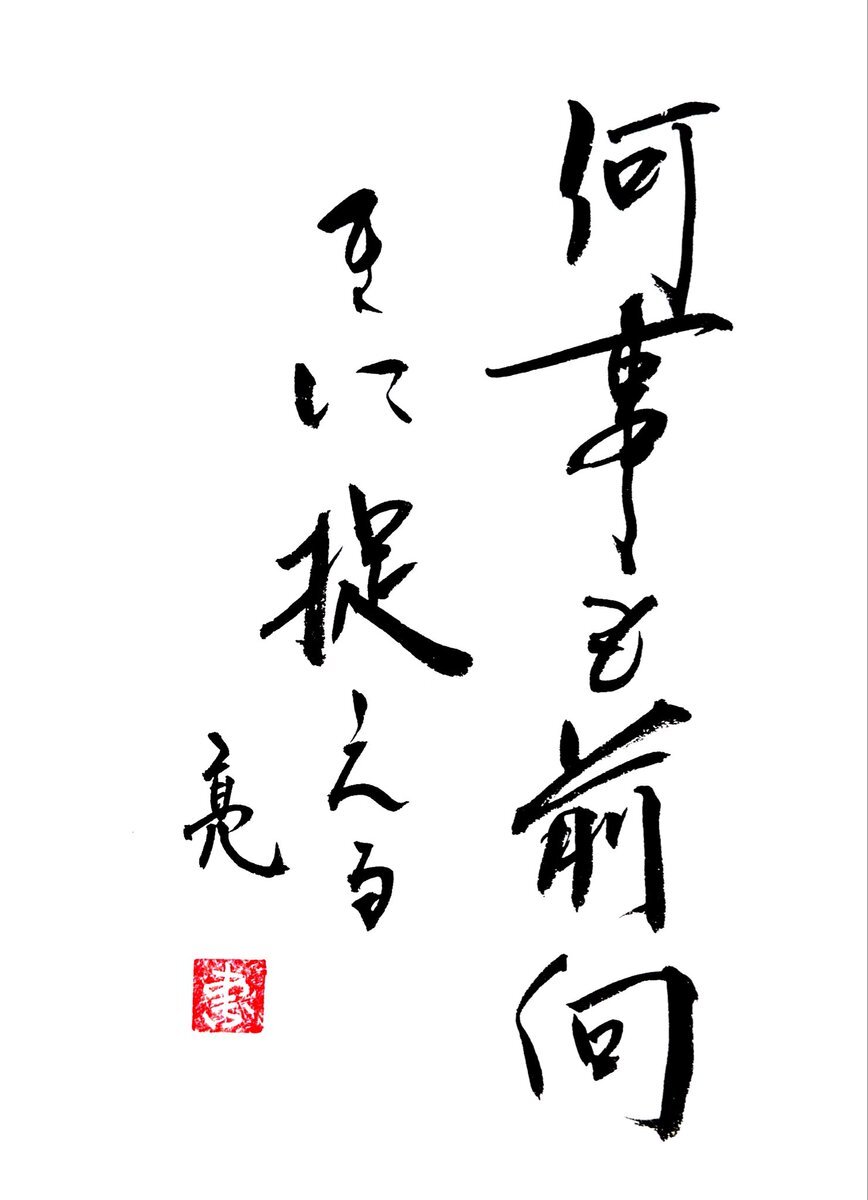 何事も前向
きに捉える
亮